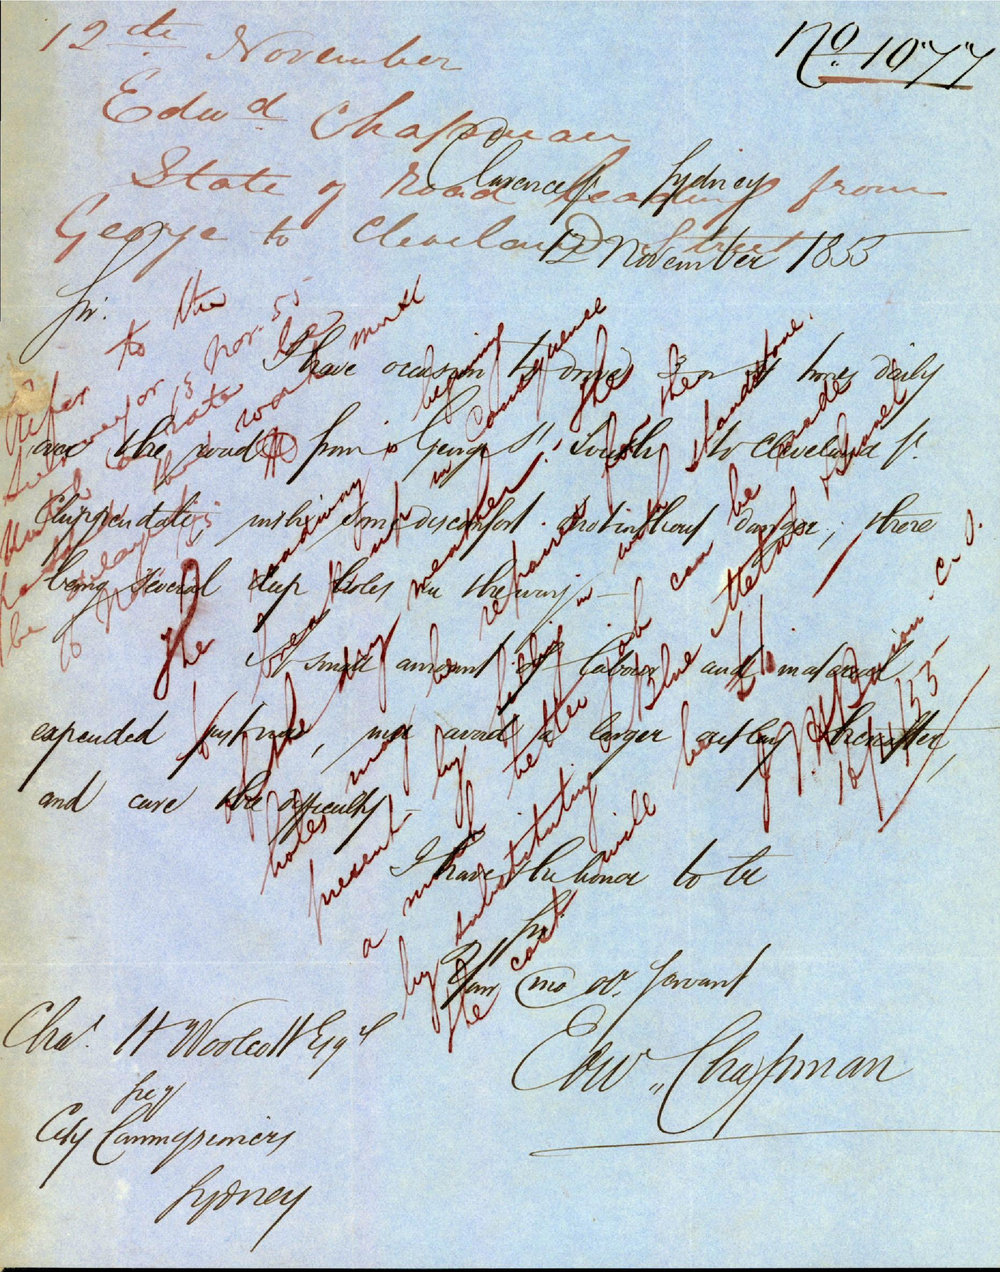 No. 1077
12th November
Edwd Chapman
State of Road leading from
George to Cleveland Street
Clarence St Sydney
12 November 1855
Sir.
I have occasion to drive 3 or 4 times daily
over the road from George St. South to Cleveland St.
Chippendale, with some discomfort & not without danger, there
being several deep holes in the way—
A small amount of labour and material
expended just now, may avoid a larger outlay hereafter,
and cure the difficulty—
I have the honor to be
Sir
Your mo ob. Servant
Edw. Chapman
Chas. H Woolcott Esqr
Secy
City Commissioners
Sydney
Refer to the
Surveyor 15 Nov. 55
to state
the work must
be
The road
beginning
to break up in consequence
of the dry weather. The
holes may be repaired for the
present by filling in with sandstone.
a much better job can be made
by substituting Blue Metal
The cost will be
16/11/55